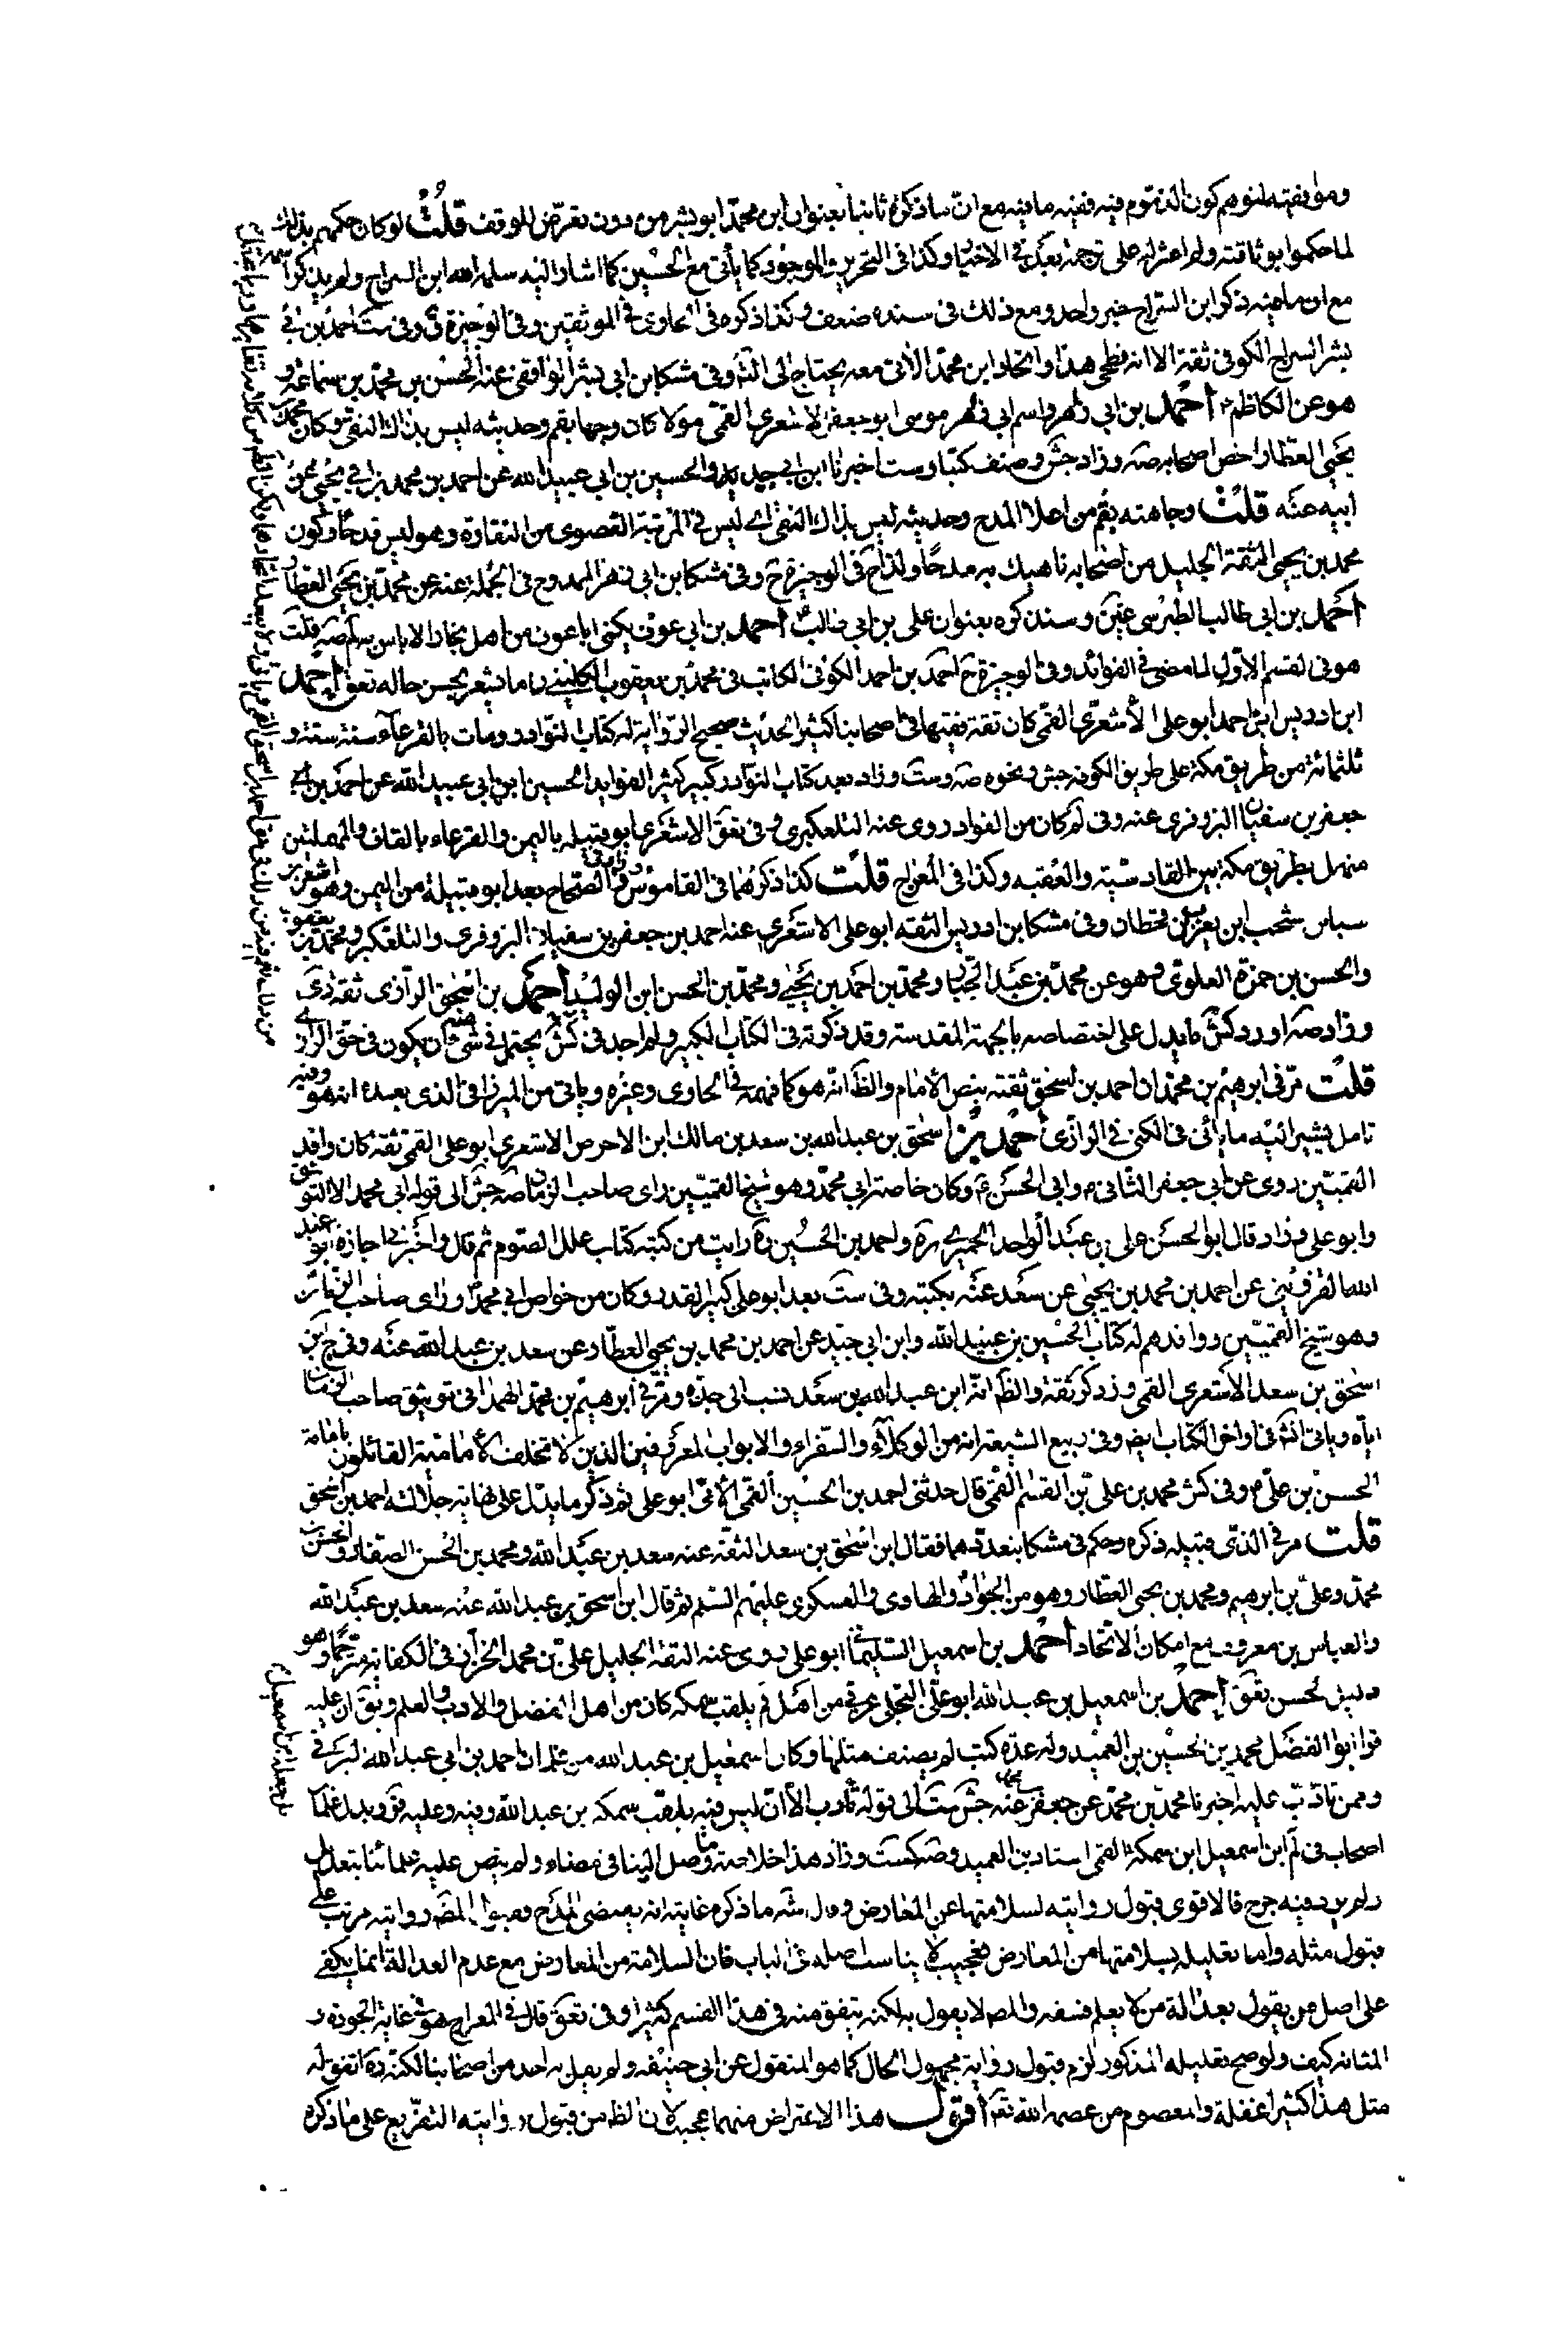 وموافقته لتوهم كون المذموم فيه ففيه ما فيه مع ان ما ذكره ثانيا بعنوان ابن محمد ابو بشر من دون تعرض للوقف قلت لو كان حكمهم بذلك
لما حكموا بوثاقته ولم اعثر له على ترجمة بعد في الاختيار وكذا في التحرير والموجود كما يأتي مع الحسين كما اشار اليه سلمه الله ابن السراج ولم يذكرا
مع ان ما فيه ذكر ابن السراج خبر واحد ومع ذلك في سنده ضعف وكذا ذكره في الحاوي في الموثقين وفي الوجيزة ق وفي ست احمد بن ابي
بشر السراج الكوفي ثقة الا انه فطحي هذا واتحاد ابن محمد الاتي معه يحتاج الى التأ وفي مشكا بن ابي بشر الواقفي عنه الحسن بن محمد بن سماعة و
هو عن الكاظم احمد بن ابي زاهر واسم ابي زاهر موسى ابو جعفر الاشعري القمي مولا كان وجها بقم وحديثه ليس بذلك النقي وكان محمد بن
يحيى العطار اخص اصحابه صه وزاد جش وصنف كتبا وست اخبرنا ابن ابي جيد والحسين بن ابي عبيد الله عن احمد بن محمد بن يحيى عن
ابيه عنه قلت وجاهته بقم من اعلا المدح وحديثه ليس بذلك النقي اي ليس في المرتبة القصوى من النقاوة وهو ليس قدحا وكون
محمد بن يحيى الثقة الجليل من اصحابه ناهيك به مدحا ولذا ح في الوجيزة ح وفي مشكا بن ابي زاهر الممدوح في الجملة عنه عن محمد بن يحيى العطار
احمد بن ابي طالب الطبرسي غير وسنذكره بعنوان علي بن ابي طالب احمد بن ابي عوف يكنى ابا عون من اهل بخارا لا باس به لم صه قلت
هو في القسم الاول لما مضى في الفوائد وفي الوجيزة ح احمد بن احمد الكوفي الكاتب في محمد بن يعقوب الكليني ما يشعر بحسن حاله تعق احمد
ابن ادريس ابن احمد ابو علي الاشعري القمي كان ثقة فقيها في اصحابنا كثير الحديث صحيح الرواية له كتاب النوادر ومات بالقرعاء سنة ستة و
ثلثمائة من طريق مكة على طريق الكوفة جش ونحوه صه وست وزاد بعد كتاب النوادر كبير كثير الفوايد الحسين ابن ابي عبيد الله عن احمد بن
جعفر بن سفيان البزوفري عنه وفي لم كان من القواد روى عنه التلعكبري وفي تعق الاشعري ابو قبيلة باليمن والقرعاء بالقاف والمهملتين
منهل بطريق مكة بين القادسية والعقبة وكذا في المعراج قلت كذا ذكرهما في القاموس وزاد في الصحاح بعد ابو قبيلة من اليمن وهو اشعر بن
سبا بن يشجب ابن يعرب بن قحطان وفي مشكا بن ادريس الثقة ابو علي الاشعري عنه احمد بن جعفر بن سفيان البزوفري والتلعكبري ومحمد بن يعقوب
والحسن بن حمزة العلوي وهو عن محمد بن عبد الجبار ومحمد بن احمد بن يحيى ومحمد بن الحسن ابن الوليد احمد بن اسحق الرازي ثقة دى
وزاد صه اورد كش ما يدل على اختصاصه بالجهة المقدسة وقد ذكرته في الكتاب الكبير ولم اجد في كش ما يحتمل فيه شئ ان يكون في حق الرازي
قلت مر في ابرهيم بن محمد ان احمد بن اسحق ثقته بنص الامام والظ انه هو كما فهمه في الحاوي وغيره وياتي من الميرزا في الذي بعده انه هو وفيه
تامل يشير اليه ما يأتي في الكنى في الرازي احمد بن اسحق بن عبد الله بن سعد بن مالك ابن الاحوص الاشعري ابو علي القمي ثقة كان وافد
القميين روى عن ابي جعفر الثاني م وابي الحسن ع وكان خاصة ابي محمد وهو شيخ القميين راى صاحب الزمان صه جش الى قوله ابي محمد الا التوثيق
وابو علي وزاد قال ابو الحسن علي بن عبد الواحد الحميري ره واحمد بن الحسين ره رايت من كتبه كتاب علل الصوم ثم قال واخبرني اجازة ابو عبد
الله القزويني عن احمد بن محمد بن يحيى عن سعد عنه بكتبه وفي ست بعد ابو علي كبير القدر وكان من خواص ابي محمد وراى صاحب الزمان
وهو شيخ القميين ووافدهم له كتاب الحسين بن عبيد الله وابن ابي جيد عن احمد بن محمد بن يحيى العطار عن سعد بن عبد الله عنه وفي ج ابن
اسحق بن سعد الاشعري القمي وزد كر ثقة والظ انه ابن عبد الله بن سعد نسب الى جده ومر في ابرهيم بن محمد الهمداني توثيق صاحب الزمان
اياه وياتي انه في اواخر الكتاب ايض وفي ربيع الشيعة انه من الوكلاء والسفراء والابواب المعروفين الذين لا تختلف الامامية القائلون بامامة
الحسن بن علي م وفي كش محمد بن علي بن القسم القمي قال حدثني احمد بن الحسين القمي الابي ابو علي ثم ذكر ما يدل على نهاية جلالته احمد بن اسحق
قلت مر في الذي قبيله ذكره وحكم في مشكا بتعددهما فقال ابن اسحق بن سعد الثقة عنه سعد بن عبد الله ومحمد بن الحسن الصفار والحسن بن
محمد وعلي بن ابرهيم ومحمد بن يحيى العطار وهو من الجواد والهادي والعسكري عليهم السلم ثم قال ابن اسحق بن عبد الله عنه سعد بن عبد الله
والعباس بن معروف مع امكان الاتحاد احمد بن اسمعيل السليماني ابو علي روى عنه الثقة الجليل علي بن محمد الخزاز في الكفاية مترحما وهو
دليل الحسن تعق احمد بن اسمعيل بن عبد الله ابو علي البجلي عربي من اهل قم يلقب سمكه كان من اهل الفضل والادب والعلم ويق ان عليه
قرا ابو الفضل محمد بن الحسين بن العميد وله عدة كتب لم يصنف مثلها وكان اسمعيل بن عبد الله من غلمان احمد بن ابي عبد الله البرقي
وممن تادب عليه اخبرنا محمد بن محمد عن جعفر بن محمد عنه جش ست الى قوله تادب الا ان ليس فيه يلقب سمكه بن عبد الله وفيه وعليه قرا وبدل غلمان
اصحاب في لم ابن اسمعيل ابن سمكة القمي استاد بن العميد وصه كست وزاد هذا خلاصة ما وصل الينا في معناه ولم ينص عليه علمائنا بتعديل
ولم يرد فيه جرح فالاقوى قبول روايته لسلامتها عن المعارض وقال شه ما ذكره غايته انه يقتضي المدح فقبول المص روايته مرتب على
قبول مثله واما تعليله بسلامتها من المعارض فعجيب لا يناسب اصله في الباب فان السلامة من المعارض مع عدم العدالة انما يكفي
على اصل من يقول بعدالة من لا يعلم فسقه والمص لا يقول به لكنه يتفق منه في هذا القسم كثيرا وفي تعق قال في المعراج هو في غاية الجودة و
المتانة كيف ولو صح تعليله المذكور لزم قبول رواية مجهول الحال كما هو المنقول عن ابي حنيفه ولم يقل به احد من اصحابنا لكنه ره اتفق له
مثل هذا كثيرا غفلة والمعصوم من عصمه الله تعه اقول هذا الاعتراض منهما عجيب لان الظ من قبول روايته التفريع على ما ذكره